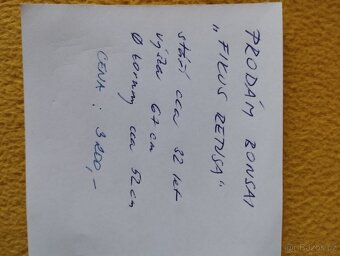 PRODÁM BONSAI
"FIKUS RETUSA"
stáří cca 32 let
výška 67 cm
Ø koruny cca 52 cm
CENA : 3200,-